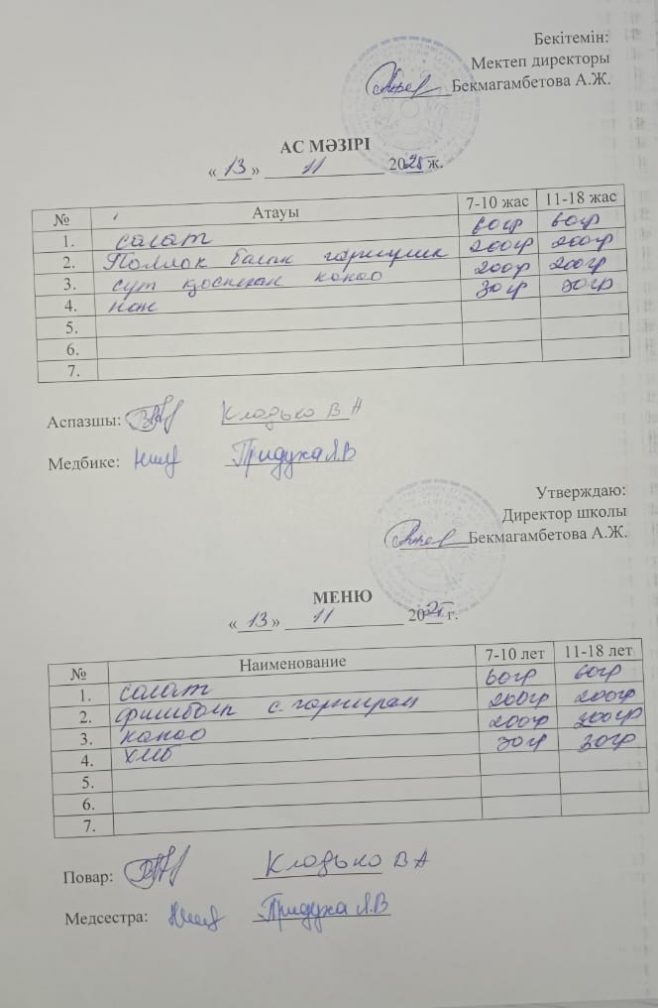 Бекітемін:
Мектеп директоры
Бекмагамбетова А.Ж.
АС МӘЗІРІ
« 13 » 11 2025 ж.
№ Атауы 7-10 жас 11-18 жас
1. салат 60гр 60гр
2. Поллок балык гарнирмен 200гр 200гр
3. сүт қосылған какао 200гр 200гр
4. нан 30гр 30гр
5.
6.
7.
Аспазшы: Клодько В А
Медбике: Придуха Л.В
Утверждаю:
Директор школы
Бекмагамбетова А.Ж.
МЕНЮ
« 13 » 11 2025 г.
№ Наименование 7-10 лет 11-18 лет
1. салат 60гр 60гр
2. с гарниром 200гр 200гр
3. какао 200гр 200гр
4. хлеб 30гр 30гр
5.
6.
7.
Повар: Клодько В А
Медсестра: Придуха Л.В